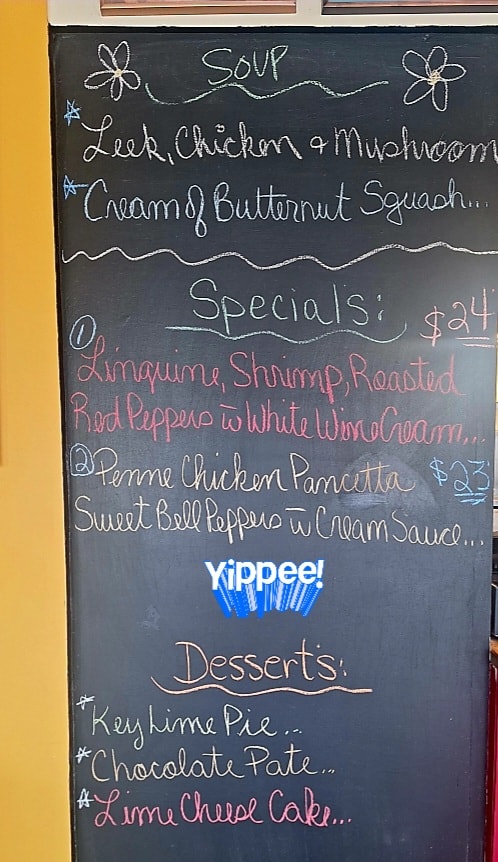 Soup
Leek, Chicken & Mushroom
Cream of Butternut Squash...
Specials: $24
① Linguine, Shrimp, Roasted
Red Peppers w White Wine Cream...
② Penne Chicken Pancetta $23
Sweet Bell Peppers w Cream Sauce...
Yippee!
Desserts:
*Key Lime Pie...
*Chocolate Pate...
*Lime Cheese Cake...